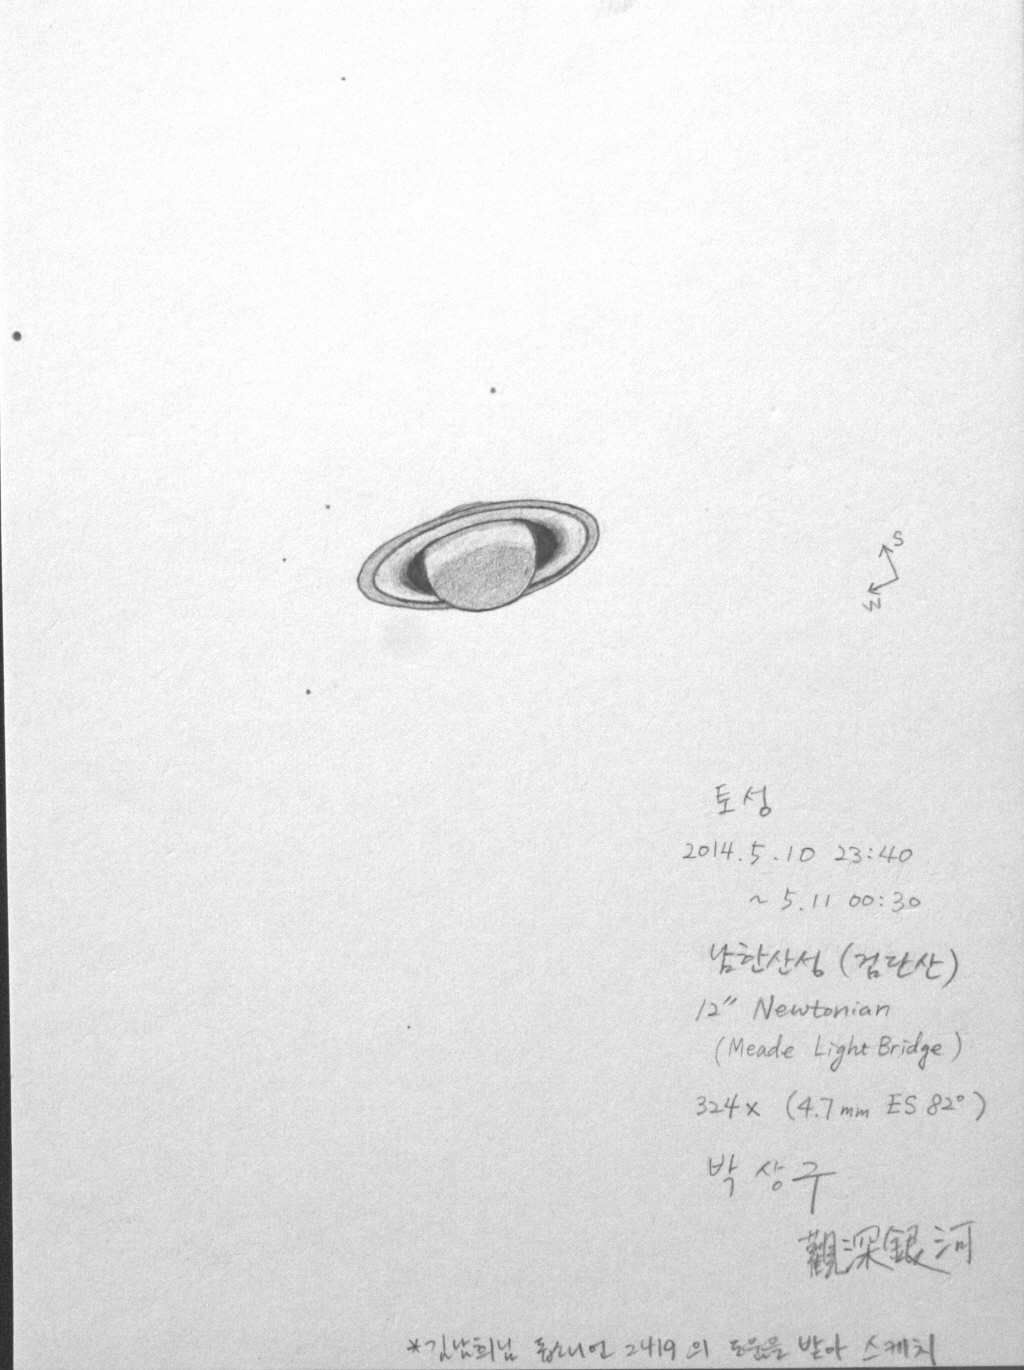 S
W
토성
2014.5.10 23:40
~ 5.11 00:30
남한산성 (검단산)
12" Newtonian
(Meade LightBridge)
324x (4.7mm ES 82°)
박상구
觀深銀河
*김남희님 돕소니언 2419의 도움을 받아 스케치